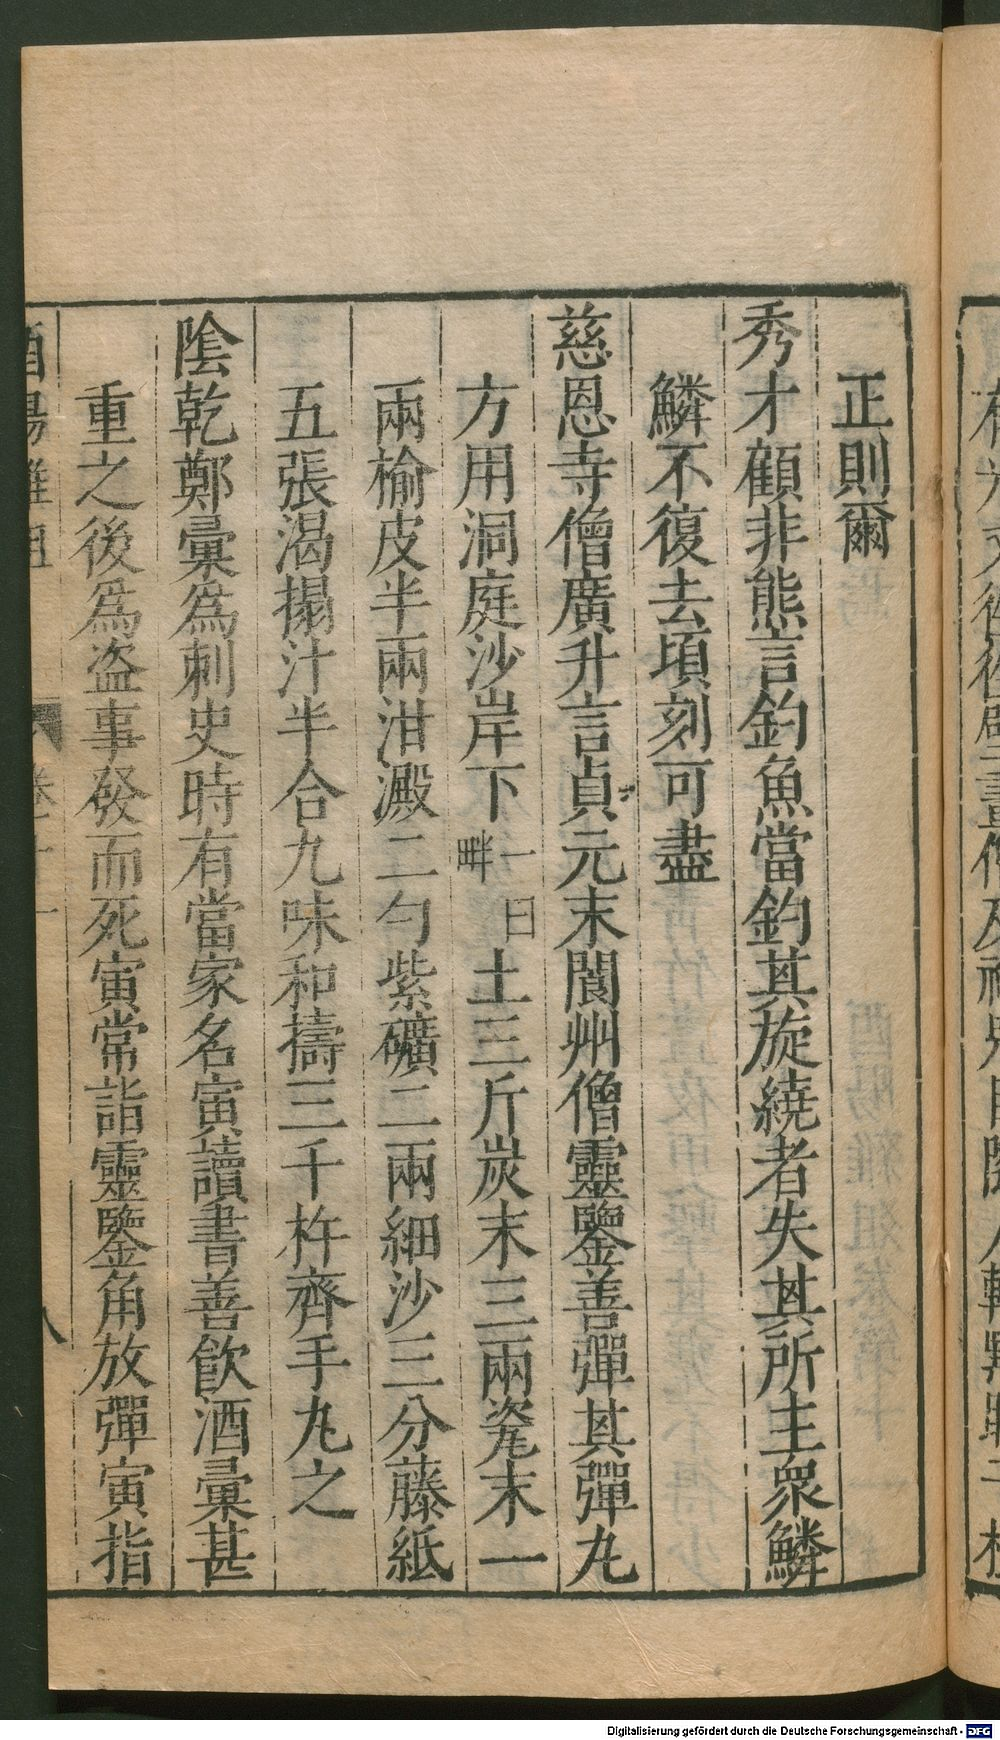 正則爾
秀才顧非熊言釣魚當釣其旋繞者失其所主衆鱗
鱗不復去頃刻可盡
慈恩寺僧廣升言貞元末閬州僧靈鑒善彈其彈丸
方用洞庭沙岸下一曰畔土三斤炭末三兩瓷末一
兩榆皮半兩泔澱二勺紫礦二兩細沙三分藤紙
五張渴搨汁半合九味和擣三千杵齊手丸之
隂乾鄭彙為刺史時有當家名寅讀書善飲酒彙甚
重之後為盗事發而死寅常詣靈鑒角放彈寅指
酉陽雜俎
卷十一
八
Digitalisierung gefördert durch die Deutsche Forschungsgemeinschaft - DFG